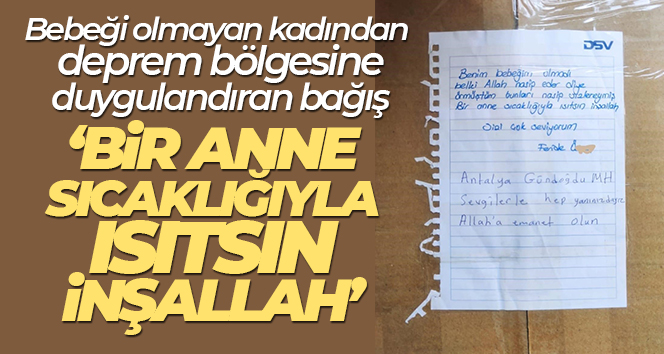 Bebeği olmayan kadından
deprem bölgesine
duygulandıran bağış
‘BİR ANNE
SICAKLIĞIYLA
ISITSIN
İNŞALLAH’
DSV
Benim bebeğim olmadı
belki Allah nasip eder diye
örmüştüm bunları nasip sizleremiş
Bir anne sıcaklığıyla ısıtsın inşallah
Sizi çok seviyorum
Feride
Antalya Gündoğdu MH
Sevgilerle hep yanınızdayız
Allah'a emanet olun